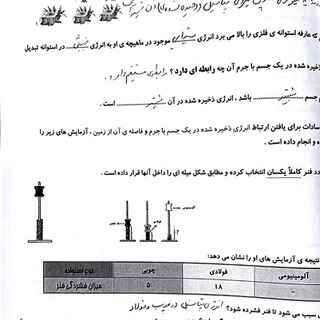 که عارفه استوانه ی فلزی را بالا می برد انرژی شیمیایی موجود در ماهیچه ی او به انرژی جنبشی در استوانه تبدیل
ذخیره شده در یک جسم با جرم آن چه رابطه ای دارد ؟ رابطه ی مستقیم دارد
جسم بیشتر باشد ، انرژی ذخیره شده در آن بیشتر است .
سادات برای یافتن ارتباط انرژی ذخیره شده در یک جسم با جرم و فاصله ی آن از زمین ، آزمایش های زیر را
و انجام داده است .
فنر کاملاً یکسان انتخاب کرده و مطابق شکل میله ای را داخل آنها قرار داده است .
نتیجه ی آزمایش های او را نشان می دهد:
نوع استوانه چوبی فولادی آلومینیومی
میزان فشردگی فنر ۵ ۱۸ _
سبب می شود تا فنر فشرده شود؟